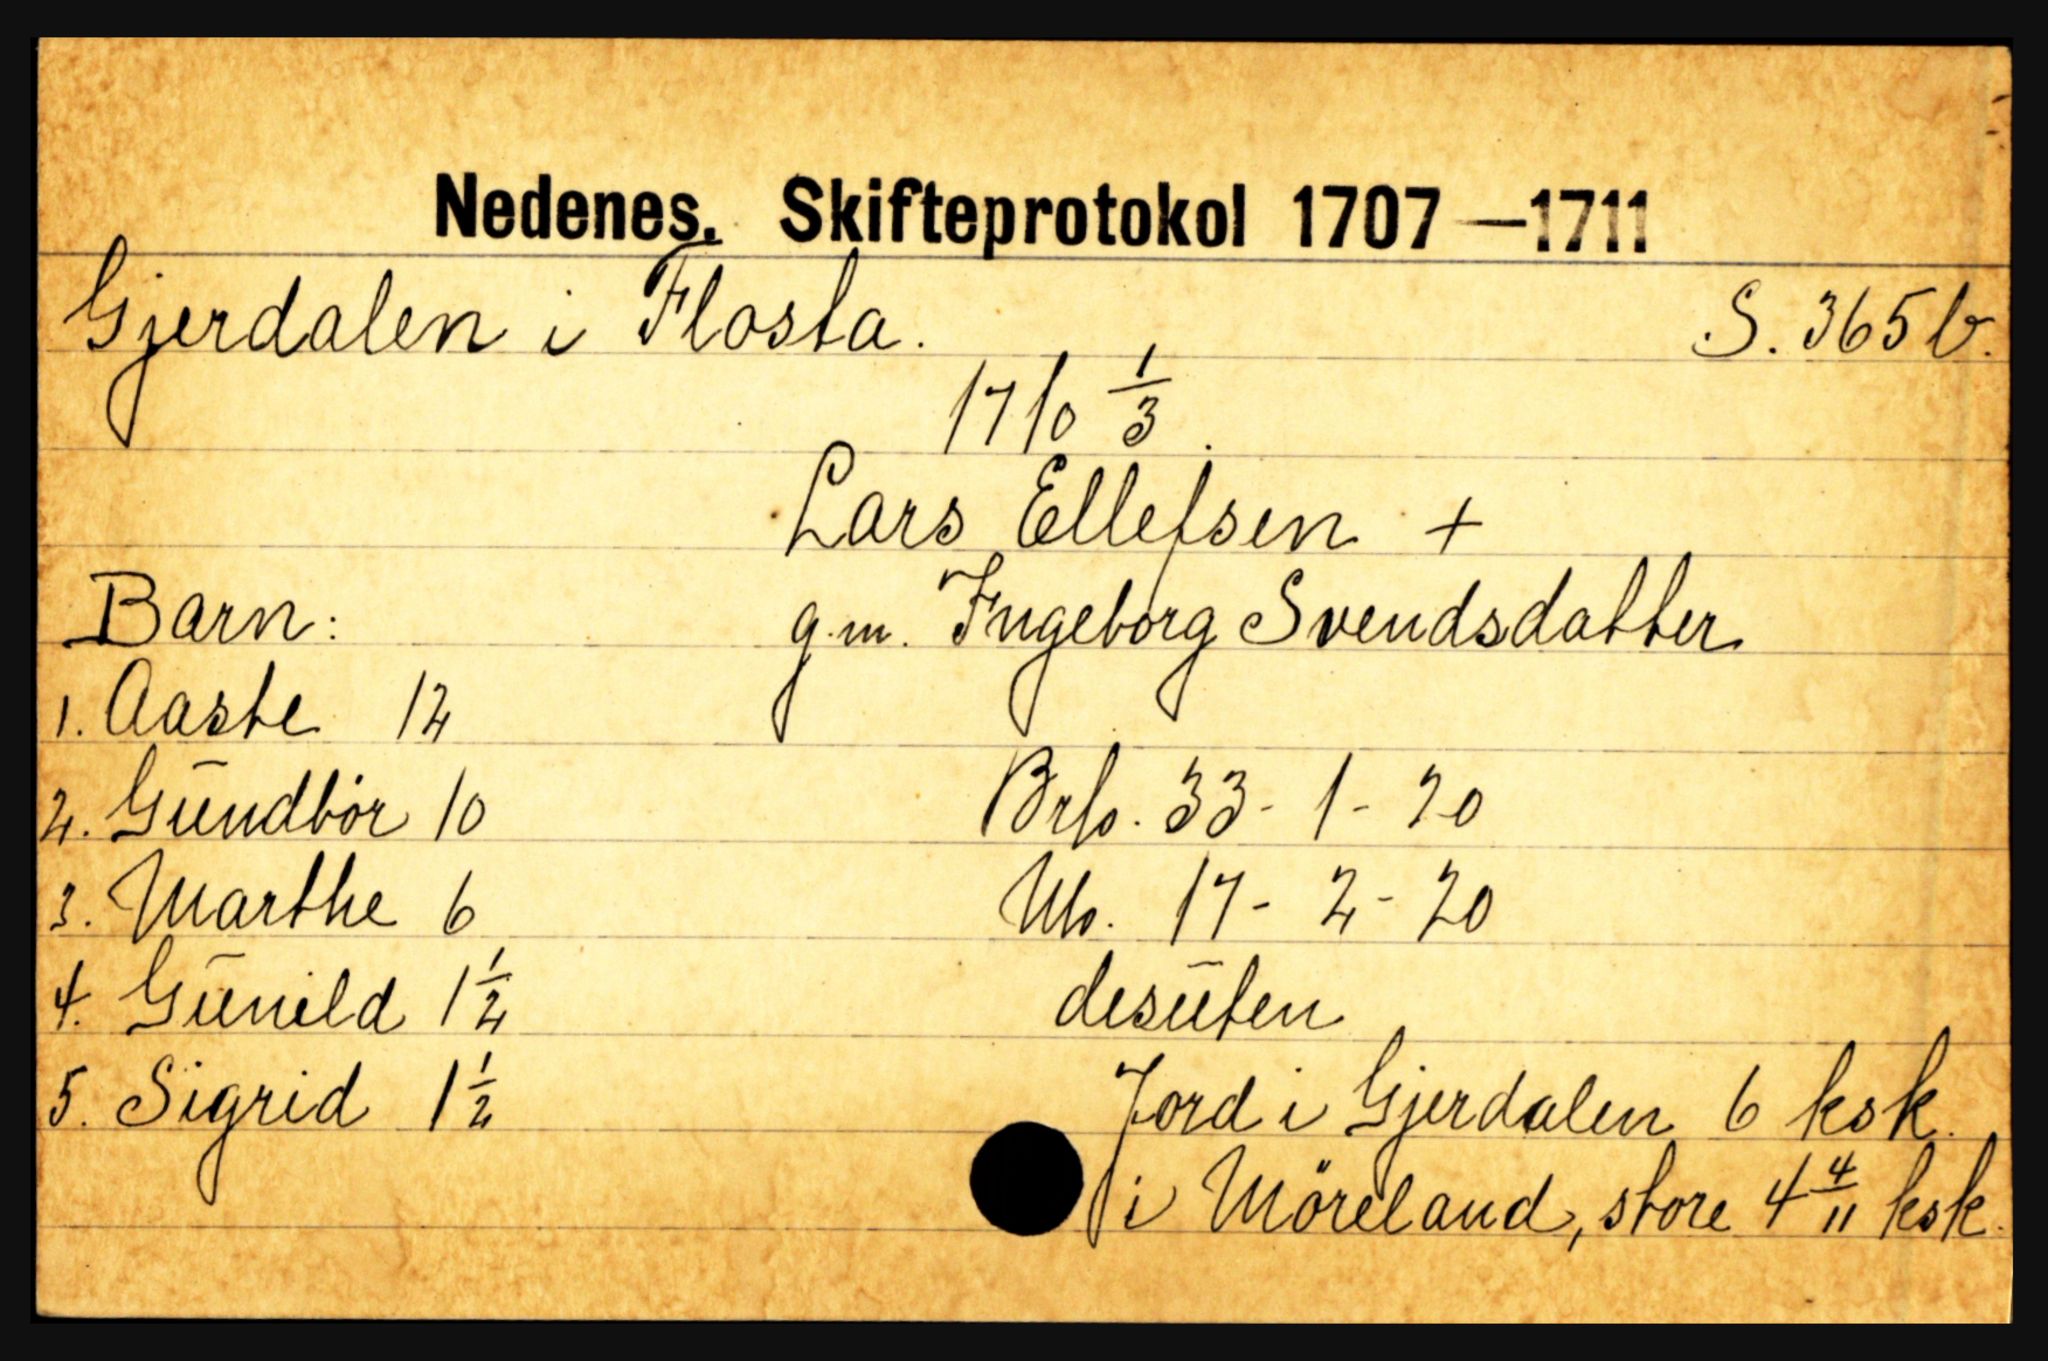 Nedenes. Skifteprotokol 1707—1711
Gjerdalen i Flosta. S. 365 b.
1710 1/3.
Lars Ellefsen +
Barn: g.m. Ingeborg Svendsdatter
1. Aaste 12
2. Gundbör 10 Brto. 33 - 1 - 20
3. Marthe 6 Nto. 17 - 2 - 20
4. Gunild 1 1/2 desuten
5. Sigrid 1 1/2 Jord i Gjerdalen 6 ksk.
i Möreland, store 4 4/11 ksk.